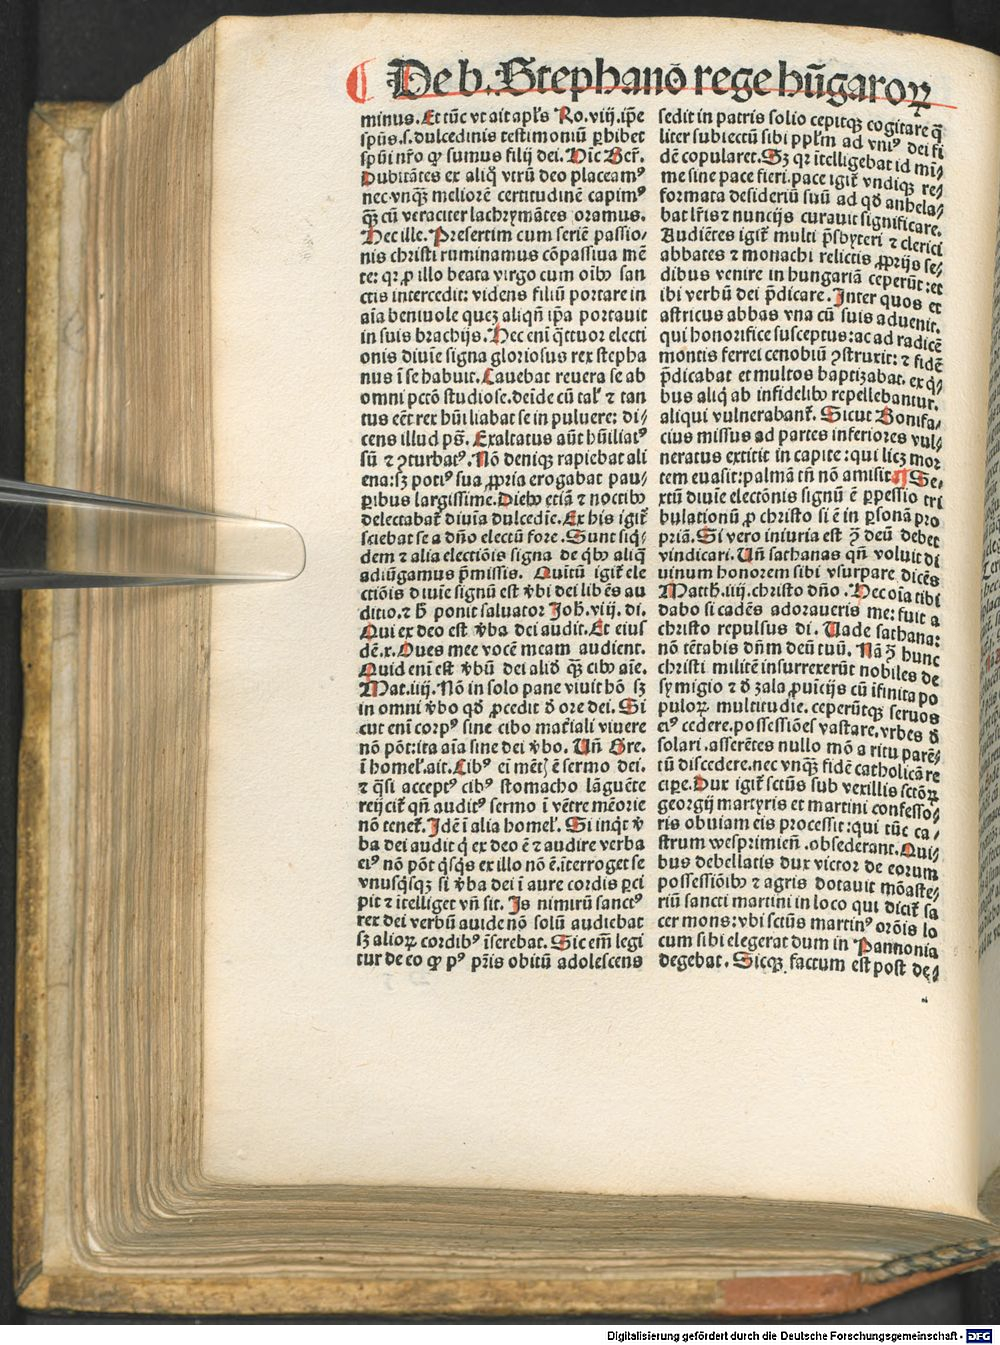 De b. Stephanō rege hūgaroꝝ
minus. Et tūc vt ait apl's Ro. viij. ip̄e
spūs.s. dulcedinis testimoniū ꝑhibet
spūi nr̄o ꝙ sumus filij dei. Hic Ber̄.
Dubitātes ex aliq̄ vtrū deo placeamꝰ
nec vnqᷓꝫ meliorē certitudinē capimꝰ
qᷓꝫ cū veraciter lachrymātes oramus.
Hec ille. Presertim cum seriē passio⸗
nis christi ruminamus cōpassiua mē
te: qꝛ ꝓ illo beata virgo cum oībꝰ san
ctis intercedit: videns filiū portare in
aīa beniuole quez aliqn̄ ip̄a portauit
in suis brachijs. Hec enī qͣttuor electi
onis diuīe signa gloriosus rex stepha
nus ī se habuit. Cauebat reuera se ab
omni pctō studiose. deīde cū tal' ⁊ tan
tus eēt rex hūiliabat se in puluere: di⸗
cens illud ps̄. Exaltatus aūt hūiliatꝰ
sū ⁊ ꝯturbatꝰ. Nō deniqꝫ rapiebat ali
ena: sꝫ potiꝰ sua ꝓpria erogabat pau⸗
ꝑibus largissime. Diebꝰ etiā ⁊ noctibꝰ
delectabat᷑ diuīa dulcedīe. Ex his igit᷑
sciebat se a dn̄o electū fore. Sunt siq̄⸗
dem ⁊ alia electiōis signa de qͥbꝰ aliq̄
adiūgamus p̄missis. Quītū igit᷑ ele
ctiōis diuīe signū est v̄bi dei libēs au
ditio. ⁊ h̄ ponit saluator Joh̄. viij. di.
Qui ex deo est v̄ba dei audit. Et eius
dē. x. Oues mee vocē meam audient.
Quid enī est v̄bū dei aliđ qᷓꝫ cibꝰ aīe.
Mat. iiij. Nō in solo pane viuit hō sꝫ
in omni v̄bo qđ ꝓcedit đ ore dei. Si
cut enī corpꝰ sine cibo mat᷑iali viuere
nō pōt: ita aīa sine dei v̄bo. Un̄ Gre.
ī homel'. ait. Cibꝰ eī mētꝭ ē sermo dei.
⁊ qͣsi acceptꝰ cibꝰ stomacho lāguēte
reijcit᷑ qn̄ auditꝰ sermo ī vētre mēorie
nō tenet᷑. Idē ī alia homel'. Si inqͥt v̄
ba dei audit qͥ ex deo ē ⁊ audire verba
eiꝰ nō pōt qͥsqͥs ex illo nō ē. īterroget se
vnusqͥsqꝫ si v̄ba dei ī aure cordis ꝑci
pit ⁊ ītelliget vn̄ sit. Is nimirū sanctꝰ
rex dei verbū auide nō solū audiebat
sꝫ alioꝝ cordibꝰ īserebat. Sic em̄ legi
tur de eo ꝙ pꝰ pr̄is obitū adolescens
sedit in patris solio cepitqꝫ cogitare qͣ
liter subiectū sibi ppl'm ad vniꝰ dei fi
dē copularet. Sꝫ qꝛ ītelligebat id mī⸗
me sine pace fieri. pace igit᷑ vndiqꝫ re⸗
formata desideriū suū ad qđ anhela⸗
bat lr̄is ⁊ nuncijs curauit significare.
Audiētes igit᷑ multi p̄sbyteri ⁊ clerici
abbates ⁊ monachi relictis ꝓprijs se⸗
dibus venire in hungariā ceperūt: et
ibi verbū dei p̄dicare. Inter quos et
astricus abbas vna cū suis aduenit.
qui honorifice susceptus: ac ad radicē
montis ferrei cenobiū ꝯstruxit: ⁊ fidē
p̄dicabat et multos baptizabat. ex qͥ⸗
bus aliq̄ ab infidelibꝰ repellebantur.
aliqui vulnerabant᷑. Sicut Bonifa⸗
cius missus ad partes inferiores vul⸗
neratus extitit in capite: qui licꝫ mor
tem euasit: palmā tn̄ nō amisit. ¶ Se⸗
xtū diuīe electōnis signū ē ꝑpessio tri
bulationū ꝓ christo si ē in ꝑsonā pro
priā. Si vero iniuria est ꝯ deū debet
vindicari. Un̄ sathanas qn̄ voluit di
uinum honorem sibi vsurpare dicēs
Matth. iiij. christo dn̄o. Hec oīa tibi
dabo si cadēs adoraueris me: fuit a
christo repulsus di. Uade sathana:
nō tētabis dn̄m deū tuū. Nā ꝯ hunc
christi militē insurrexerūt nobiles de
symigio ⁊ đ zala ꝓuīcijs cū īfinita po
puloꝝ multitudīe. ceperūtqꝫ seruos
eiꝰ cedere. possessiōes vastare. vrbes đ
solari. asserētes nullo mō a ritu parē⸗
tū discedere. nec vnqᷓꝫ fidē catholicā re
cipe. Dux igit᷑ sctūs sub vexillis sctōꝝ
georgij martyris et martini confesso⸗
ris obuiam eis processit: qui tūc ca⸗
strum wesprimien̄. obsederant. Qui⸗
bus debellatis dux victor de eorum
possessiōibꝰ ⁊ agris dotauit mōaste⸗
riū sancti martini in loco qui dicit᷑ sa
cer mons: vbi sctūs martinꝰ orōis lo
cum sibi elegerat dum in Pannonia
degebat. Sicqꝫ factum est post de⸗
Digitalisierung gefördert durch die Deutsche Forschungsgemeinschaft - DFG